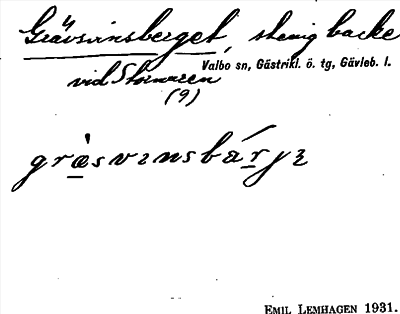 Grävsvinsberget, stenig backe
Valbo sn, Gästrikl. ö. tg, Gävleb. l.
vid Storvreten
(9)
EMIL LEMHAGEN 1931.